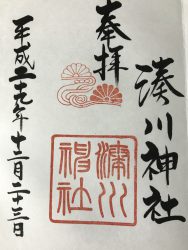 奉拝
湊川神社
湊川神社
平成二十九年十二月二十三日